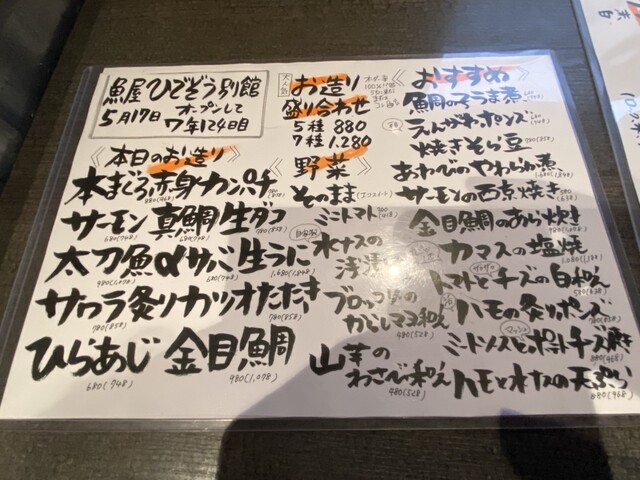 魚屋ひでぞう別館
5月17日オープンして
7年124日目
大人気
お造り
盛り合わせ
5種 880
7種 1.280
《本日のお造り》
本まぐろ赤身 カンパチ
サーモン 真鯛 生ダコ
680(748) 680(748) 780(858)
太刀魚 αサバ 生うに
980(1,078) 680(748) 1,680(1,848)
サワラ炙り カツオたたき
780(858) 780(858)
ひらあじ 金目鯛
680(748) 980(1,078)
《野菜》
そのまま
ミニトマト
水ナスの
浅漬
ブロッコリーの
からしマヨ和え
480(528)
山芋の
わさび和え
480(528)
《おすすめ》
鯛の子うま煮
えんがわポン酢
焼きそら豆
あわびのやわらか煮
サーモンの西京焼き
金目鯛のあら炊き
カマスの塩焼
トマトとチーズの白和え
ハモの炙りポン酢
ハモと水ナスの天ぷら
880(968)